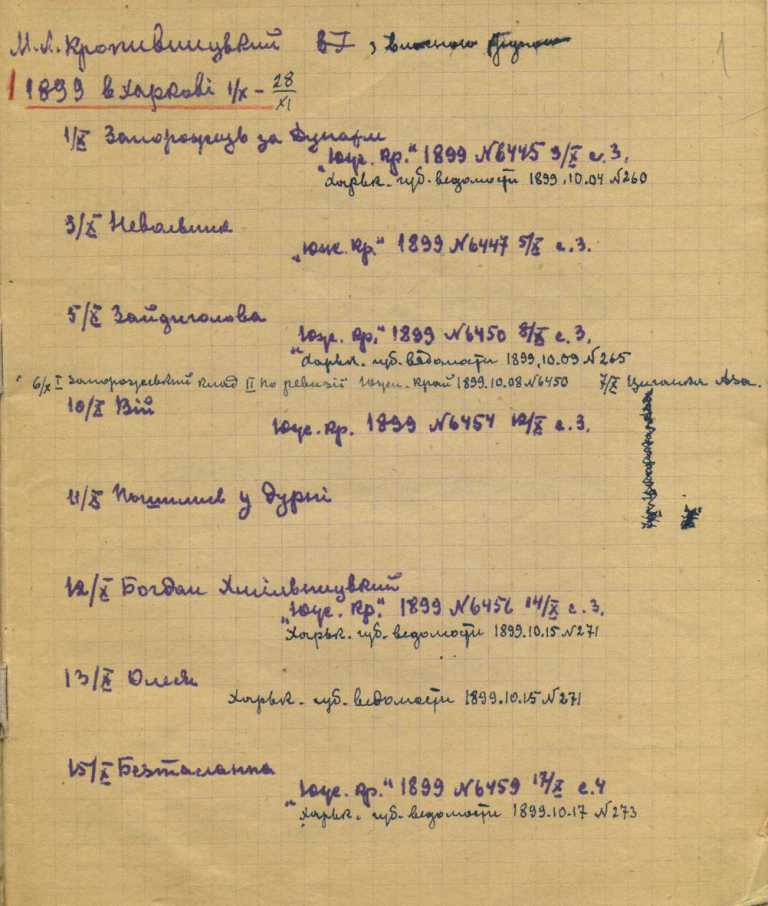 М.Л. Кропивницкий
1
1899 в Харкові 1/X - 28/XI
1/X Запорожець за Дунаєм
"Юж. Кр." 1899 №6445 3/X с. 3.
"Харьк. губ. ведомости 1899, 10.04 №260
3/X Невольник
"Юж. Кр." 1899 №6447 5/X с. 3.
5/X Зайдиголова
"Юж. Кр." 1899 №6450 8/X с. 3.
Харьк. губ. ведомости 1899, 10.09 №265
6/X I Запорожський клад II По ревизії Южн. Край 1899.10.08 №6450 7/X Циганка Аза.
10/X Вій
Юж. Кр. 1899 №6454 12/X с. 3.
11/X Пошились у дурні
12/X Богдан Хмільницкий
"Юж. Кр." 1899 №6456 14/X с. 3.
Харьк. губ. ведомости 1899.10.15 №271
13/X Олеся
Харьк. губ. ведомости 1899.10.15 №271
15/X Безталанна
"Юж. Кр." 1899 №6459 17/X с. 4
Харьк. губ. ведомости 1899.10.17 №273